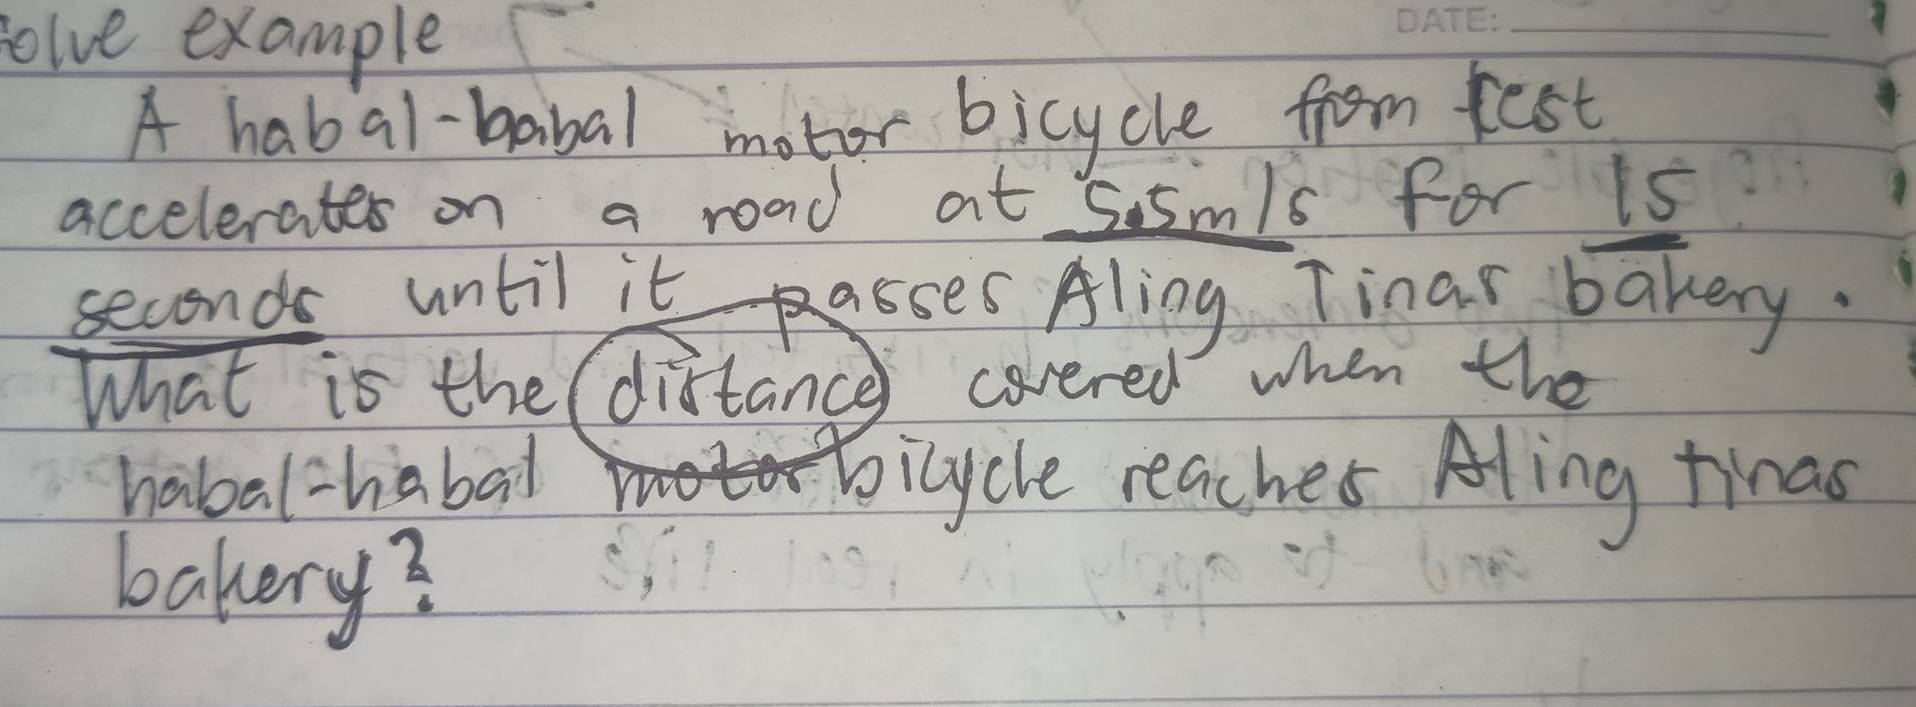 solve example
DATE:
A habal-babal motor bicycle from rest
accelerates on a road at 5.5m/s for 15
seconds until it passes Aling Tinas bakery.
What is the distance covered when the
habal-habal motor bicycle reaches Aling tinas
bakery?
and to apply in real life